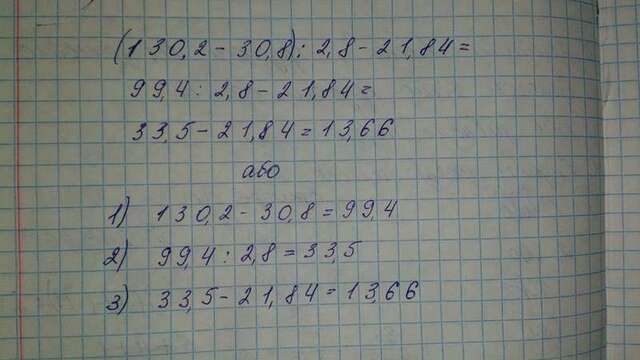 (130,2-30,8):2,8-21,84=
99,4:2,8-21,84=
33,5-21,84=13,66
або
1) 130,2-30,8=99,4
2) 99,4:2,8=33,5
3) 33,5-21,84=13,66